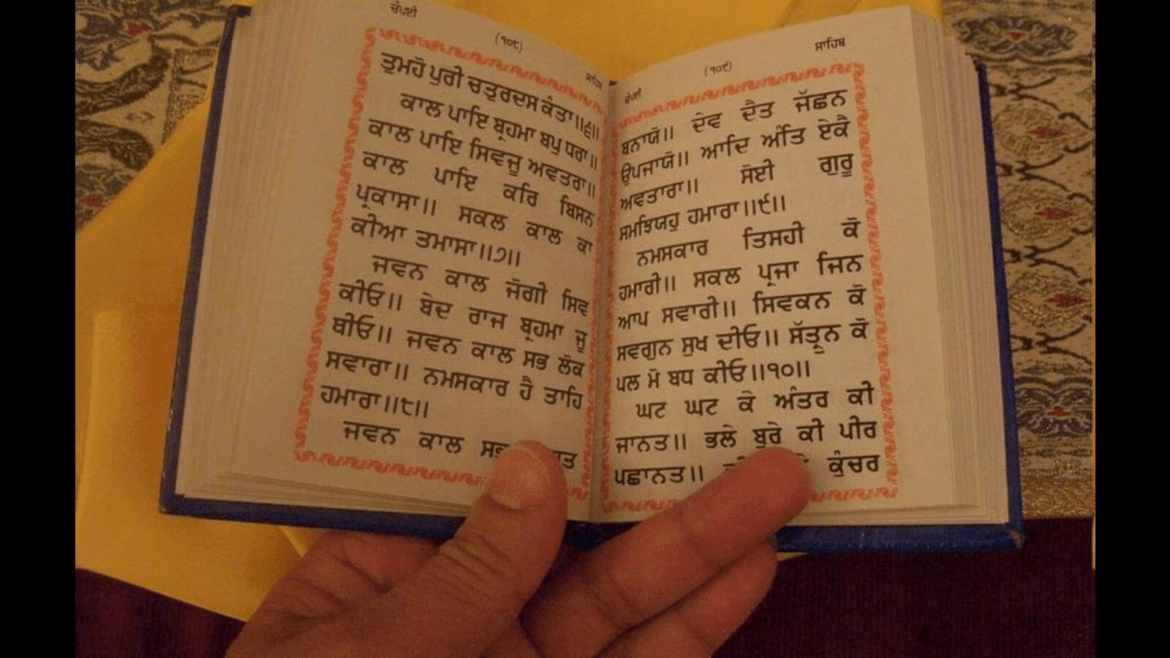 ਚੌਪਈ
(੧੦੮)
ਸਾਹਿਬ
ਤੁਮਹੋ ਪੁਰੀ ਚਤੁਰਦਸ ਕੰਤਾ॥੬॥
ਕਾਲ ਪਾਇ ਬ੍ਰਹਮਾ ਬਪੁ ਧਰਾ॥
ਕਾਲ ਪਾਇ ਸਿਵਜੂ ਅਵਤਰਾ॥
ਕਾਲ ਪਾਇ ਕਰਿ ਬਿਸਨ
ਪ੍ਰਕਾਸਾ॥ ਸਕਲ ਕਾਲ ਕਾ
ਕੀਆ ਤਮਾਸਾ॥੭॥
ਜਵਨ ਕਾਲ ਜੋਗੀ ਸਿਵ
ਕੀਓ॥ ਬੇਦ ਰਾਜ ਬ੍ਰਹਮਾ ਜੂ
ਥੀਓ॥ ਜਵਨ ਕਾਲ ਸਭ ਲੋਕ
ਸਵਾਰਾ॥ ਨਮਸਕਾਰ ਹੈ ਤਾਹਿ
ਹਮਾਰਾ॥੮॥
ਜਵਨ ਕਾਲ
ਚੌਪਈ
(੧੦੯)
ਸਾਹਿਬ
ਬਨਾਯੋ॥ ਦੇਵ ਦੈਤ ਜੱਛਨ
ਉਪਜਾਯੋ॥ ਆਦਿ ਅੰਤਿ ਏਕੈ
ਅਵਤਾਰਾ॥ ਸੋਈ ਗੁਰੂ
ਸਮਝਿਯਹੁ ਹਮਾਰਾ॥੯॥
ਨਮਸਕਾਰ ਤਿਸਹੀ ਕੋ
ਹਮਾਰੀ॥ ਸਕਲ ਪ੍ਰਜਾ ਜਿਨ
ਆਪ ਸਵਾਰੀ॥ ਸਿਵਕਨ ਕੋ
ਸਵਗੁਨ ਸੁਖ ਦੀਓ॥ ਸੱਤ੍ਰੁਨ ਕੋ
ਪਲ ਮੋ ਬਧ ਕੀਓ॥੧੦॥
ਘਟ ਘਟ ਕੇ ਅੰਤਰ ਕੀ
ਜਾਨਤ॥ ਭਲੇ ਬੁਰੇ ਕੀ ਪੀਰ
ਪਛਾਨਤ॥ ਕੁੰਚਰ